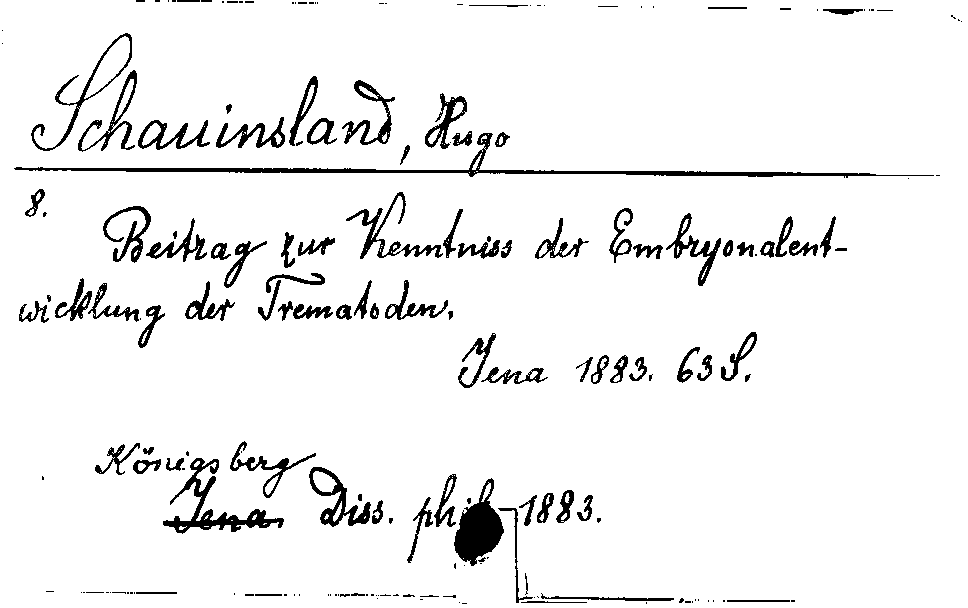 Schauinsland, Hugo
8.
Beitrag zur Kenntniss der Embryonalent-
wicklung der Trematoden.
Jena 1883. 63 S.
Königsberg
Jena Diss. phil 1883.